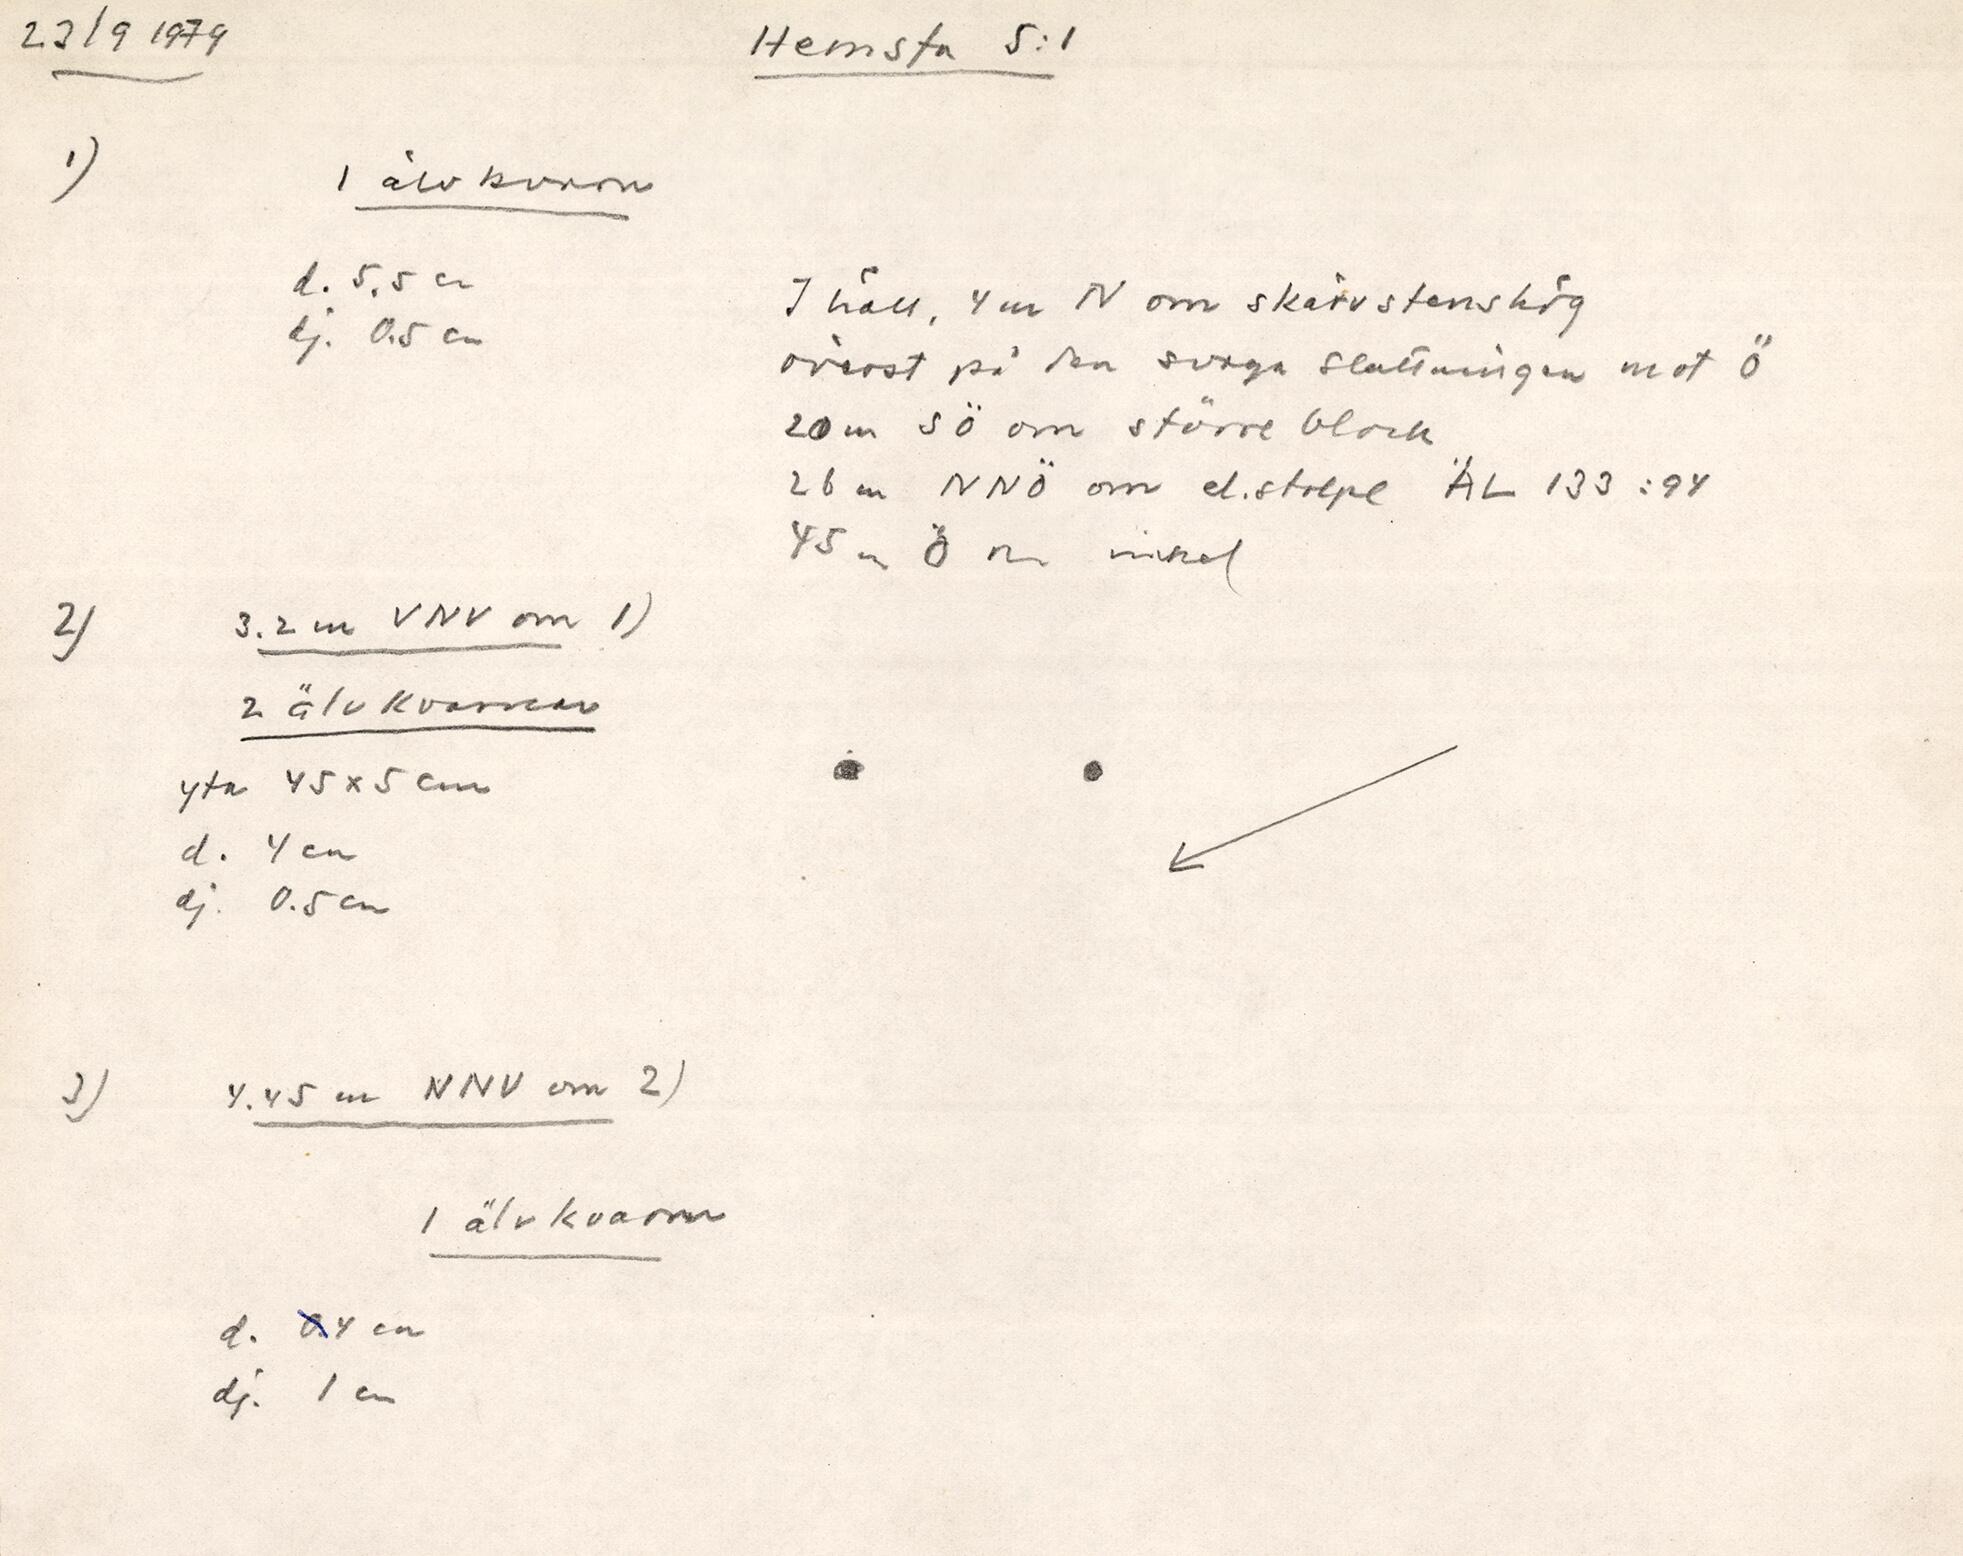 23/9 1979
Hemsta 5:1
1)
1 älvkvarn
d. 5,5 cm
dj. 0.5 cm
I häll, 4 m N om skärvstenshög
överst på den svaga sluttningen mot Ö
20 m SÖ om större block
26 m NNÖ om el.stolpe ÄL 133:94
45 m Ö om vinkel
2)
3.2 m VNV om 1)
2 älvkvarnar
yta 45x5 cm
d. 4 cm
dj. 0.5 cm
3)
4.45 m NNV om 2)
1 älvkvarn
d. 0.4 cm
dj. 1 cm